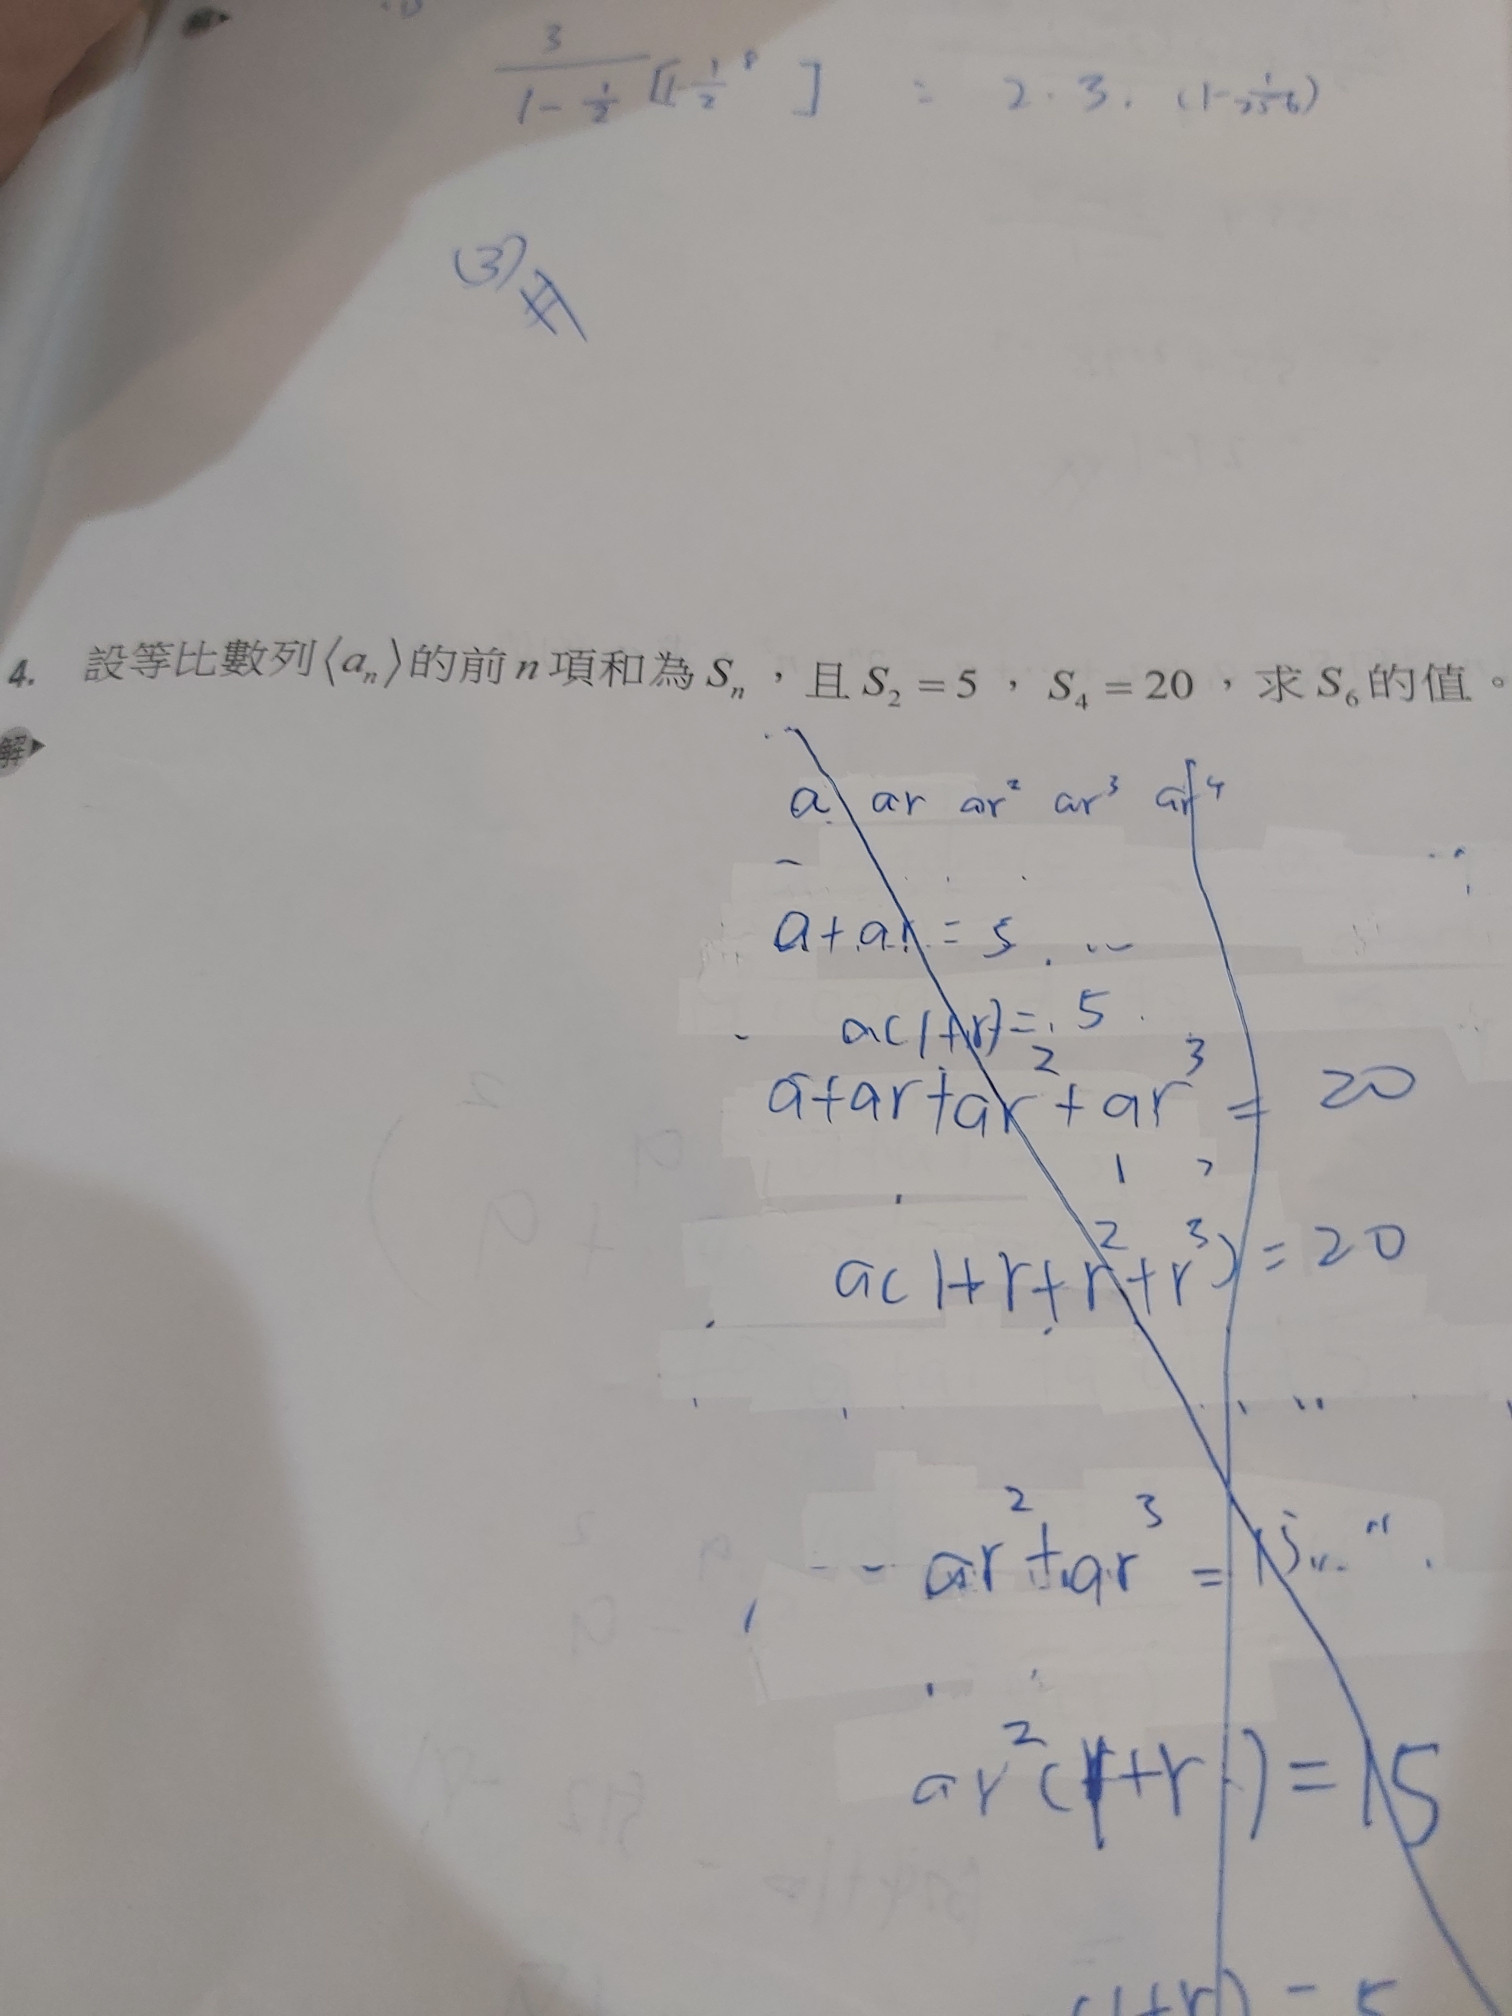 3
1-1/2 [1-1/2^8] = 2·3·(1-1/256)
(3)
4. 設等比數列⟨aₙ⟩的前 n 項和為 Sₙ,且 S₂ = 5 , S₄ = 20 ,求 S₆ 的值。
解
a ar ar² ar³ ar⁴
a+ar = 5
a(1+r) = 5
a+ar+ar²+ar³ = 20
a(1+r+r²+r³) = 20
ar²+ar³ = 15
ar²(1+r) = 15
(1+r) = 5